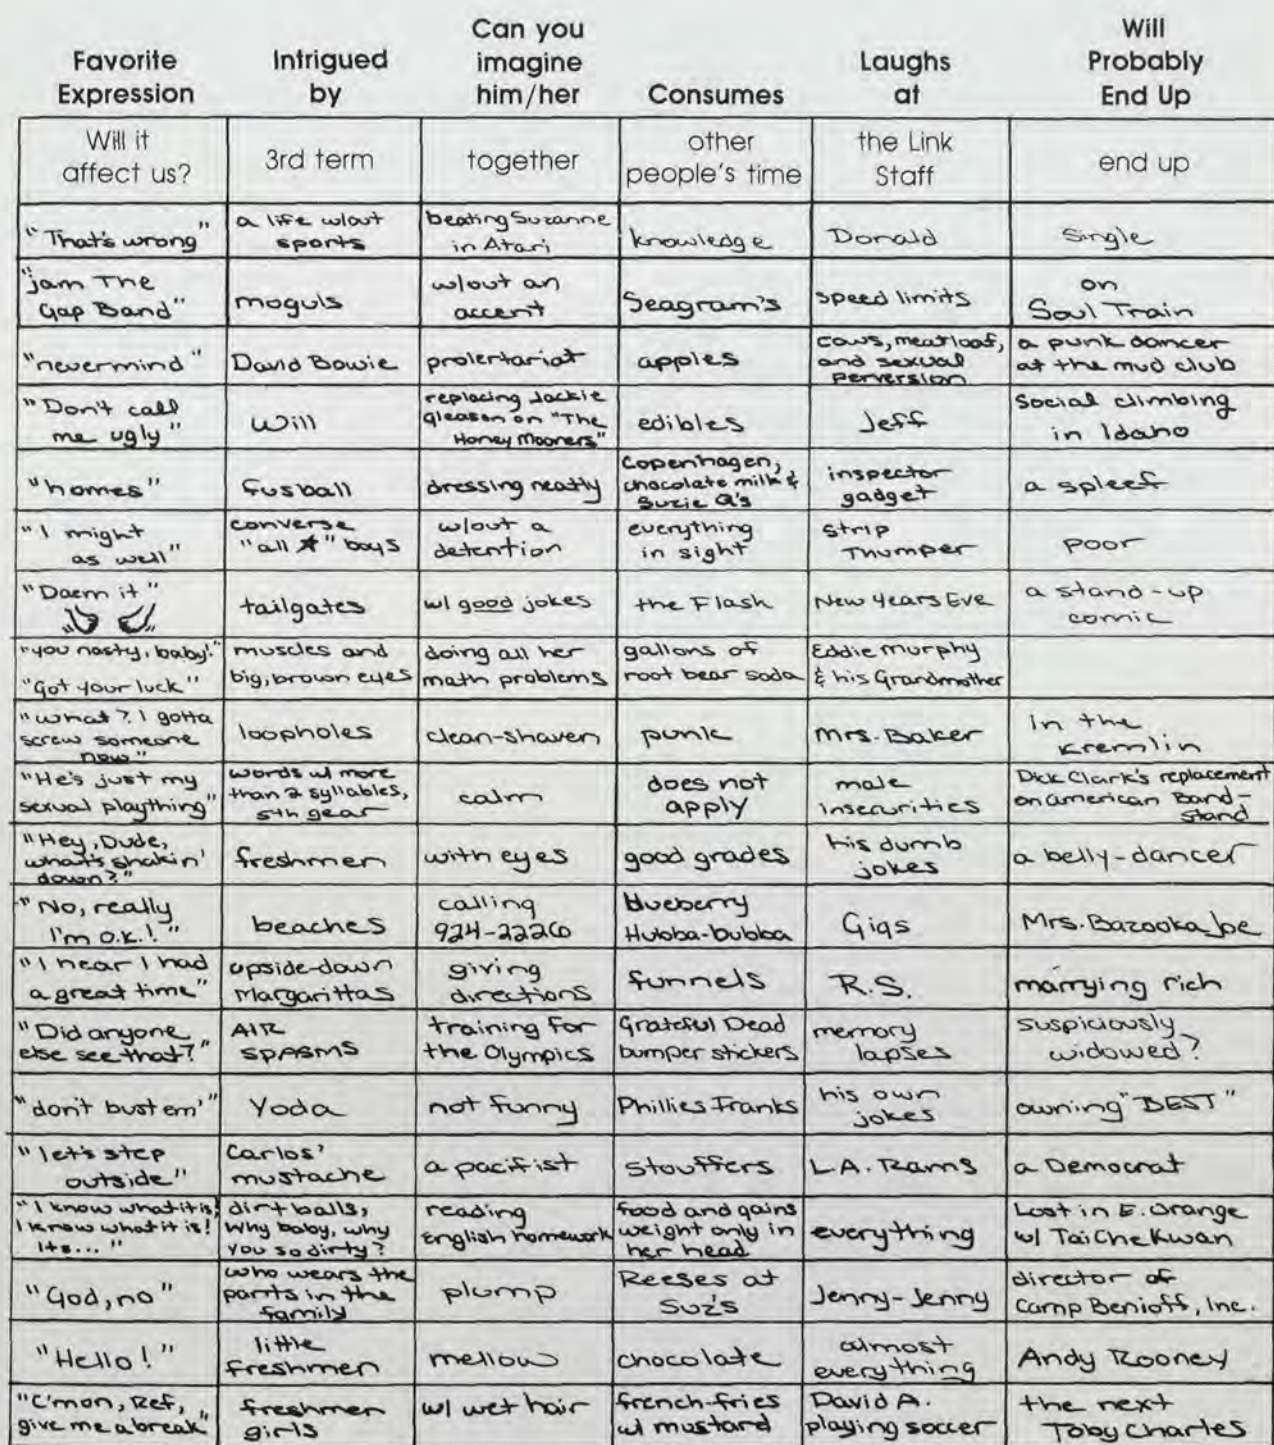 Favorite
Expression
Intrigued
by
Can you
imagine
him/her
Consumes
Laughs
at
Will
Probably
End Up
Will it
affect us?
3rd term
together
other
people's time
the Link
Staff
end up
"That's wrong"
a life w/out
sports
beating Suzanne
in Atari
knowledge
Donald
Single
"jam The
Gap Band"
moguls
w/out an
accent
Seagram's
speed limits
on
Soul Train
"nevermind"
David Bowie
prolertariat
apples
cows, meatloaf,
and sexual
perversion
a punk dancer
at the mud club
"Don't call
me ugly"
Will
replacing Jackie
Gleason on "The
Honey Mooners"
edibles
Jeff
Social climbing
in Idaho
"homes"
fusball
dressing neatly
Copenhagen,
chocolate milk &
Suzie Q's
inspector
gadget
a spleef
"I might
as well"
converse
"all ★" boys
w/out a
detention
everything
in sight
strip
Thumper
poor
"Daem it"
tailgates
w/ good jokes
the Flash
New Years Eve
a stand-up
comic
"you nasty, baby!"
"Got your luck"
muscles and
big, brown eyes
doing all her
math problems
gallons of
root bear soda
Eddie Murphy
& his Grandmother
"what? I gotta
screw someone
now"
loopholes
clean-shaven
punk
Mrs. Baker
in the
Kremlin
"He's just my
sexual plaything"
words w/ more
than 2 syllables,
5th gear
calm
does not
apply
male
insecurities
Dick Clark's replacement
on American Band-
stand
"Hey, Dude,
what's shakin'
down?"
freshmen
with eyes
good grades
his dumb
jokes
a belly-dancer
"No, really
I'm O.K.!"
beaches
calling
924-2226
blueberry
Hubba-bubba
Gigs
Mrs. Bazooka Joe
"I hear I had
a great time"
upside-down
Margarittas
giving
directions
funnels
R.S.
marrying rich
"Did anyone
else see that?"
AIR
SPASMS
training for
the Olympics
Grateful Dead
bumper stickers
memory
lapses
suspiciously
widowed?
"don't bust em'"
Yoda
not funny
Phillies Franks
his own
jokes
owning "BEST"
"let's step
outside"
Carlos'
mustache
a pacifist
stouffers
L.A. Rams
a Democrat
"I know what it is!
I know what it is!
Its..."
dirt balls,
Why baby, why
you so dirty?
reading
English homework
food and gains
weight only in
her head
everything
Lost in E. Orange
w/ Tai Che Kwan
"God, no"
who wears the
pants in the
family
plump
Reeses at
Suz's
Jenny-Jenny
director of
Camp Benioff, Inc.
"Hello!"
little
freshmen
mellow
chocolate
almost
everything
Andy Rooney
"C'mon, Ref,
give me a break"
freshmen
girls
w/ wet hair
french-fries
w/ mustard
David A.
playing soccer
the next
Toby Charles